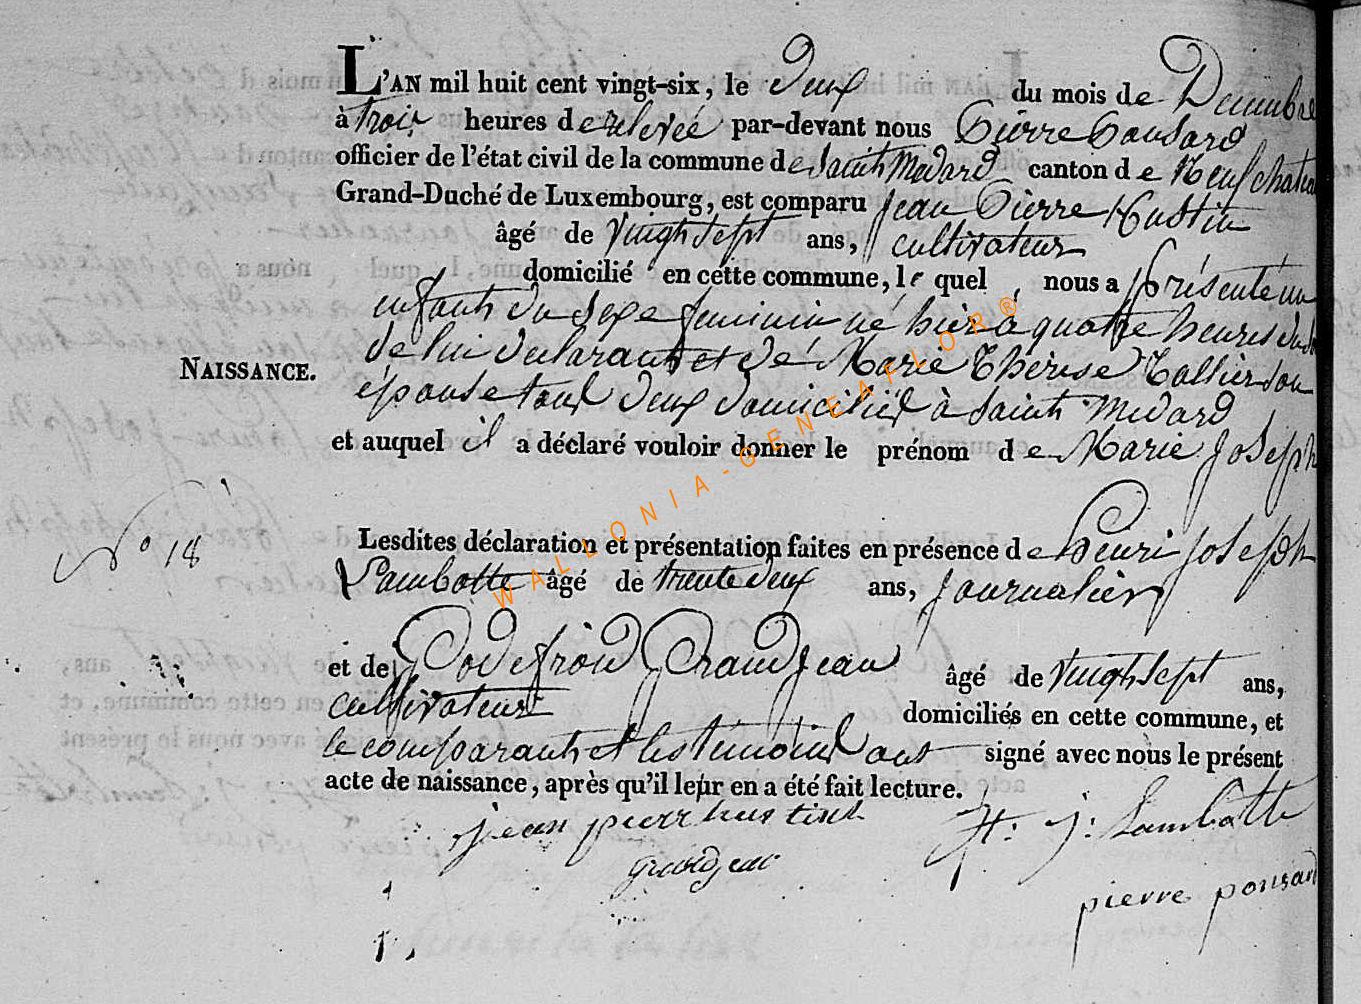 L'AN mil huit cent vingt-six, le deux du mois de Decembre
à trois heures de relevée par-devant nous Pierre Ponsard
officier de l'état civil de la commune de Saint Medard canton de Neufchateau
Grand-Duché de Luxembourg, est comparu Jean Pierre Hustin
âgé de vingt sept ans, cultivateur
domicilié en cette commune, le quel, nous a présenté un
enfant du sexe feminin né hier à quatre heures du
NAISSANCE.
de lui declarant et de Marie Thérese Collier son
épouse tous deux domiciliés à Saint Medard
et auquel il a déclaré vouloir donner le prénom de Marie Joseph
N° 18
Lesdites déclaration et présentation faites en présence de Henri Joseph
Lambotte âgé de trente deux ans, journalier
et de Godefroid Grandjean âgé de vingt sept ans,
cultivateur domiciliés en cette commune, et
le comparant et les témoins ont signé avec nous le présent
acte de naissance, après qu'il leur en a été fait lecture.
jean pierr hustin H: J: Lambotte
grandjean
pierre ponsard
WALLONIA-GENEAFLOR®